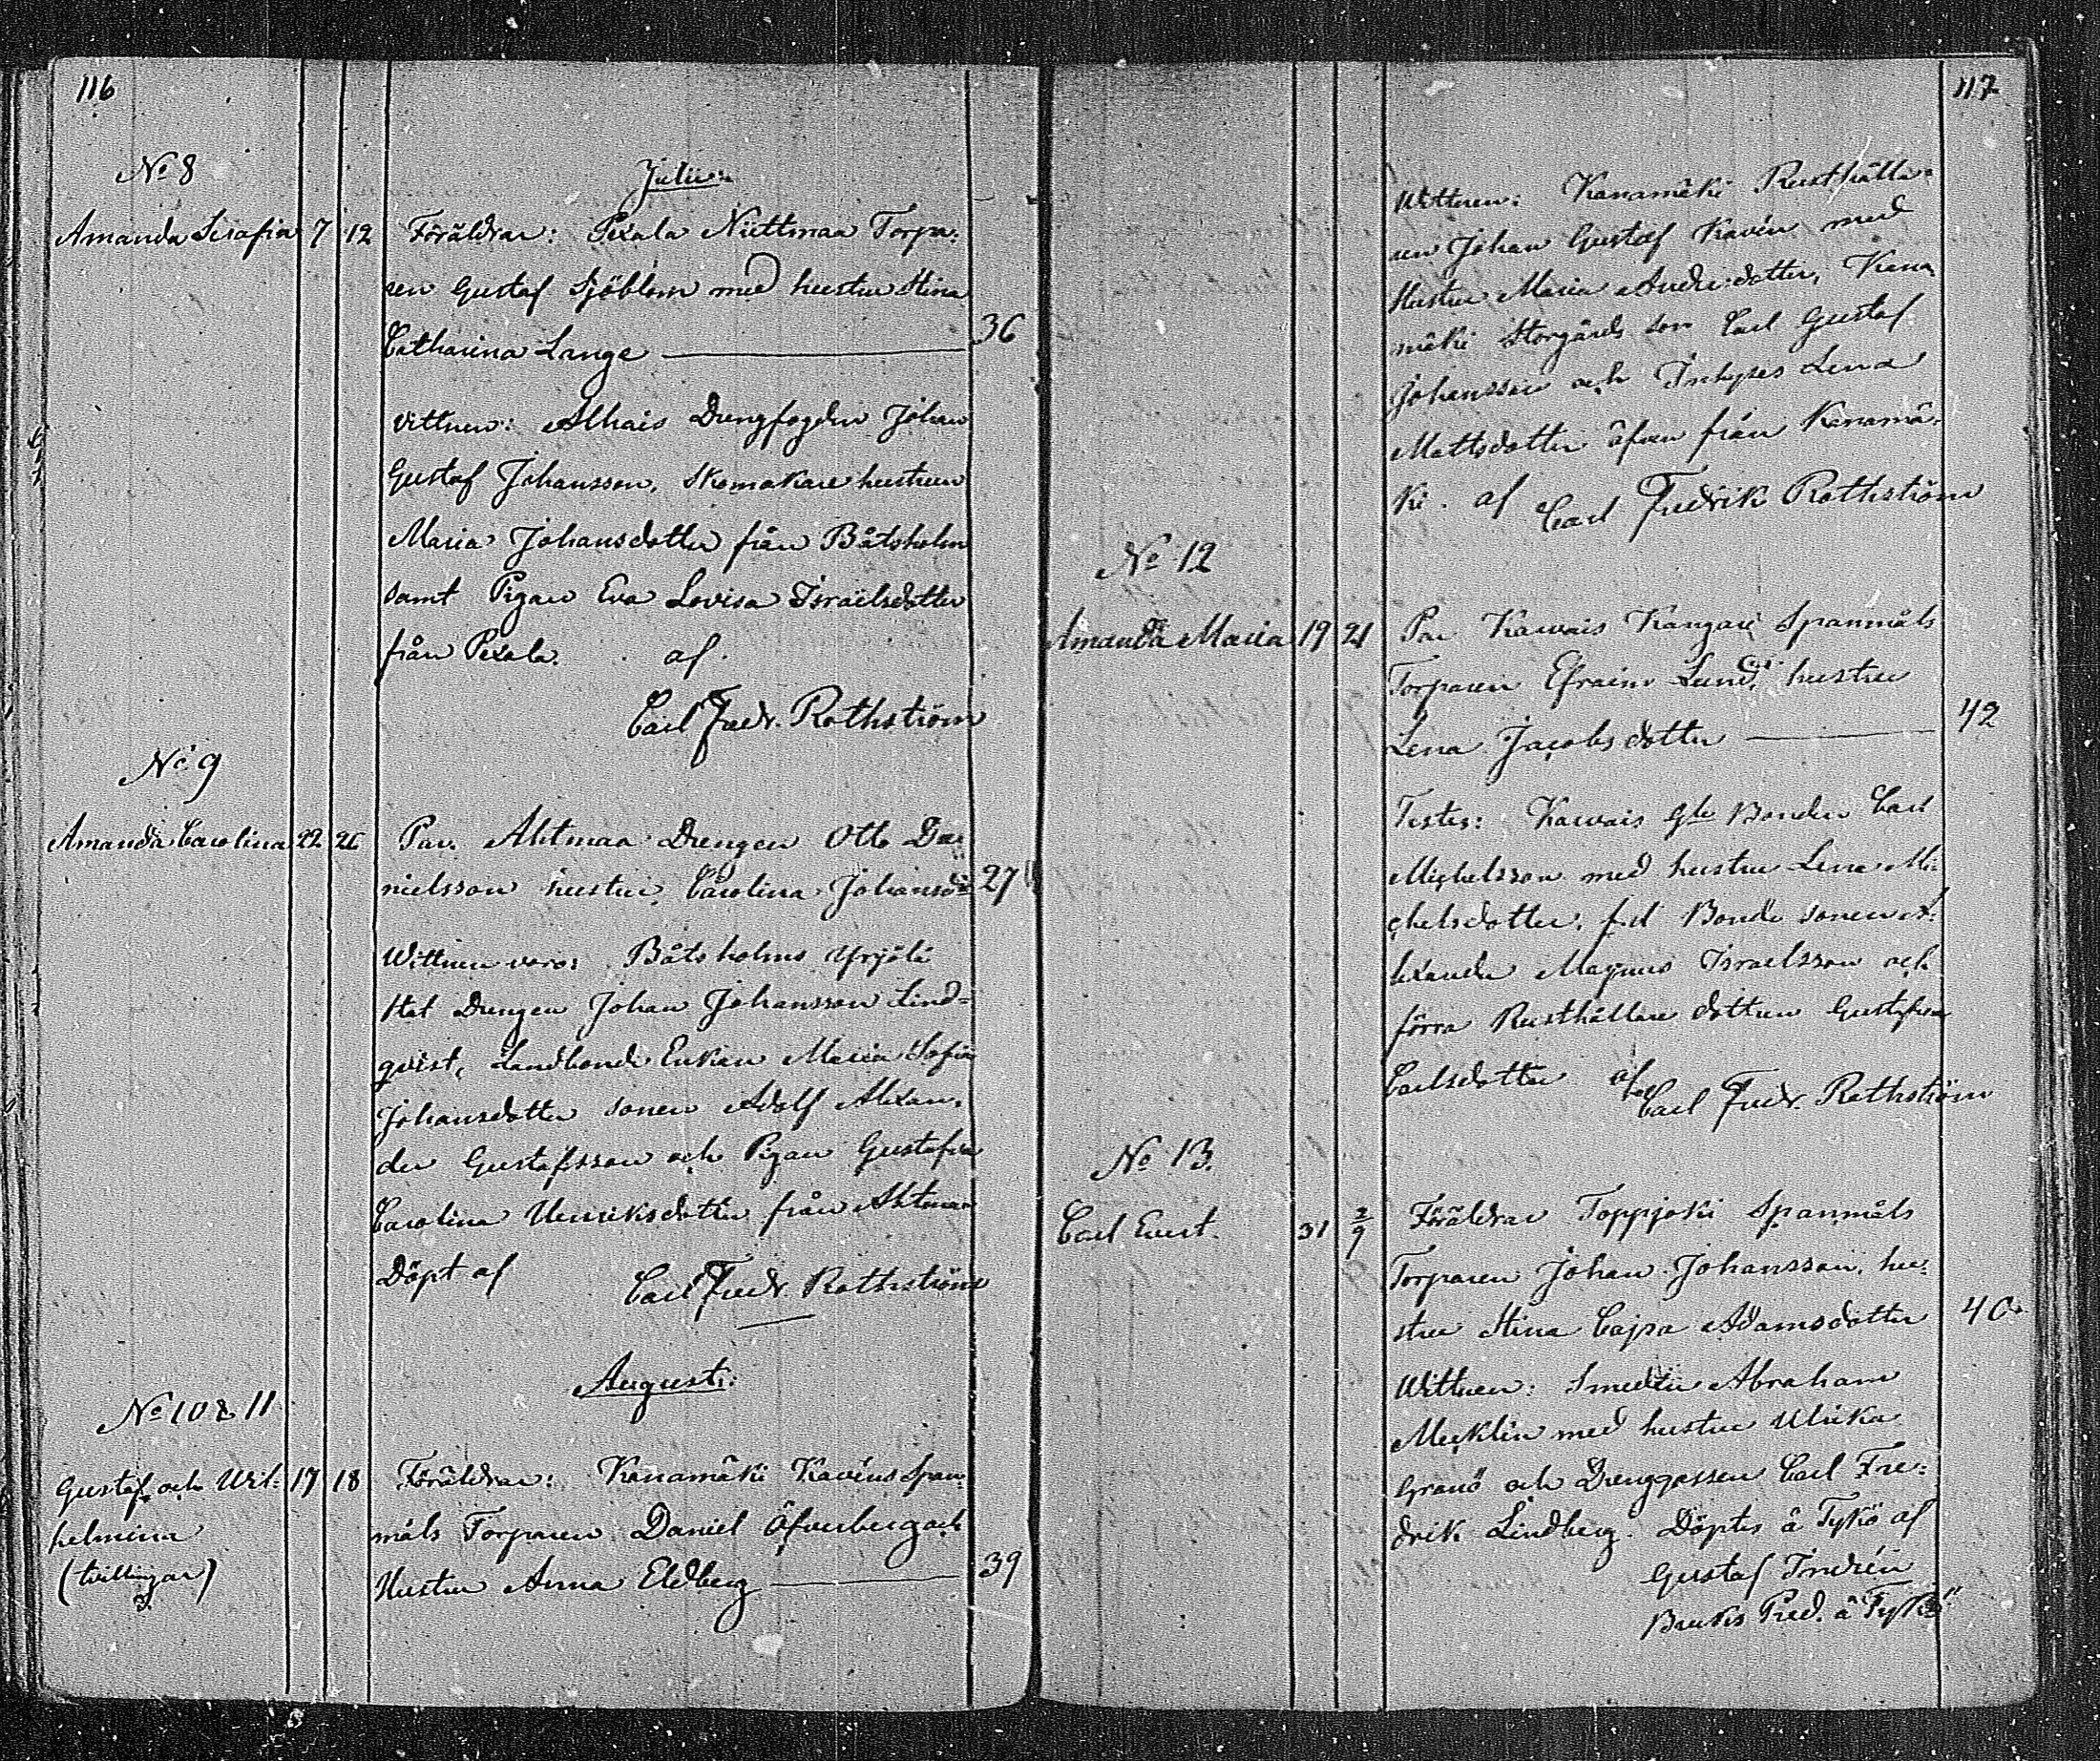 116
No 8
Julius
Amanda Serafia 7 12 Föräldrar: Pexala Niittmaa Torpa-
ren Gustaf Sjöblom med hustru Stina
Catharina Lange 36
Vittnen: Alhais Drengfogden Johan
Gustaf Johansson, Skomakare hustrun
Maria Johansdotter från Båtsholm
samt Pigan Eva Lovisa Israelsdotter
från Pexala. af
Carl Fredr. Rothström
No 9
Amanda Carolina 22 26 Par. Ahtmaa Drengen Otto Da-
nielsson hustru, Carolina Johansdr 27
Wittnen voro: Båtsholms Yrjölä
Drengen Johan Johansson Lind=
qvist, Landbonde Enkan Maria Sofia
Johansdotter sonen Adolf Alexan-
der Gustafsson och Pigan Gustafva
Carolina Henriksdotter från Ahtmaa
Döpt af Carl Fredr. Rothström
Augusti:
No 10 & 11
Gustaf och Wil- 17 18 Föräldrar: Kanamäki Kavéns Span-
helmina måls Torparen Daniel Öfverberg och
(tvillingar) Hustru Anna Eldberg 39
117
Wittnen: Kanamäki Rusthålla-
ren Johan Gustaf Kavén med
Hustru Maria Andersdotter, Kana
mäki Storgårds son Carl Gustaf
Johansson och Inhyses Lena
Mattsdotter äfven från Kanamä-
ki. af Carl Fredrik Rothström
No 12
Amanda Maria 19 21 Par Karvais Kangari Spanmåls
Torparen Efraim Lund, hustru
Lena Jacobsdotter 42
Testes: Karvais Gle Bonden Carl
Michelsson med hustru Lena Mi-
chelsdotter, f.d Bonde sonen A-
lexander Magnus Israelsson och
förra Rusthållare dottren Gustafva
Carlsdotter af Carl Fredr. Rothström
No 13.
Carl Evert. 31 2/9 Föräldrar Toppjoki Spanmåls
Torparen Johan Johansson, hu-
stru Stina Cajsa Adamsdotter 40.
Wittnen: Smeden Abraham
Mecklin med hustru Ulrika
Granö och Drenggossen Carl Fre-
drik Lindberg. Döptes å Tykö af
Gustaf
Bruks Pred. å Tykö